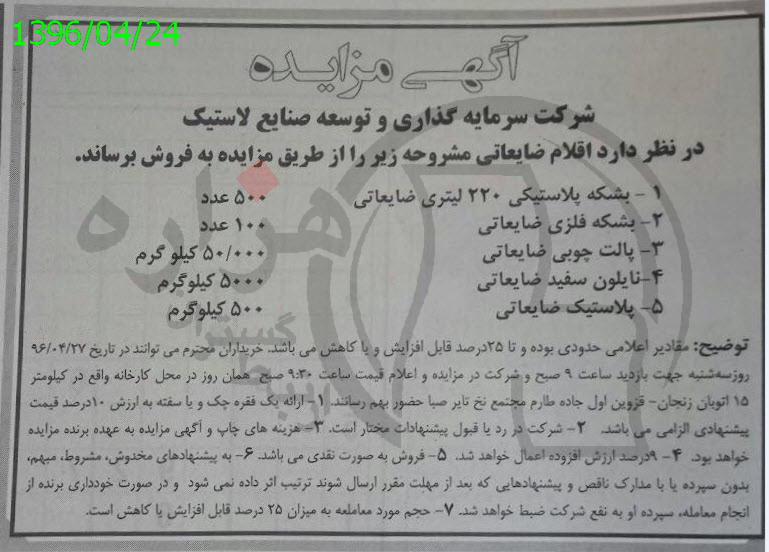 1396/04/24
آگهی مزایده
شرکت سرمایه گذاری و توسعه صنایع لاستیک
در نظر دارد اقلام ضایعاتی مشروحه زیر را از طریق مزایده به فروش برساند.
۱- بشکه پلاستیکی ۲۲۰ لیتری ضایعاتی ۵۰۰ عدد
۲- بشکه فلزی ضایعاتی ۱۰۰ عدد
۳- پالت چوبی ضایعاتی ۵۰/۰۰۰ کیلو گرم
۴-نایلون سفید ضایعاتی ۵۰۰۰ کیلوگرم
۵- پلاستیک ضایعاتی ۵۰۰ کیلوگرم
هزاره
گستران
توضیح: مقادیر اعلامی حدودی بوده و تا ۲۵درصد قابل افزایش و یا کاهش می باشد. خریداران محترم می توانند در تاریخ ۹۶/۰۴/۲۷
روزسه‌شنبه جهت بازدید ساعت ۹ صبح و شرکت در مزایده و اعلام قیمت ساعت ۹:۳۰ صبح همان روز در محل کارخانه واقع در کیلومتر
۱۵ اتوبان زنجان- قزوین اول جاده طارم مجتمع نخ تایر صبا حضور بهم رسانند. ۱- ارائه یک فقره چک و یا سفته به ارزش ۱۰درصد قیمت
پیشنهادی الزامی می باشد. ۲- شرکت در رد یا قبول پیشنهادات مختار است. ۳- هزینه های چاپ و آگهی مزایده به عهده برنده مزایده
خواهد بود. ۴- ۹درصد ارزش افزوده اعمال خواهد شد. ۵- فروش به صورت نقدی می باشد. ۶- به پیشنهادهای مخدوش، مشروط، مبهم،
بدون سپرده یا با مدارک ناقص و پیشنهادهایی که بعد از مهلت مقرر ارسال شوند ترتیب اثر داده نمی شود و در صورت خودداری برنده از
انجام معامله، سپرده او به نفع شرکت ضبط خواهد شد. ۷- حجم مورد معاملعه به میزان ۲۵ درصد قابل افزایش یا کاهش است.